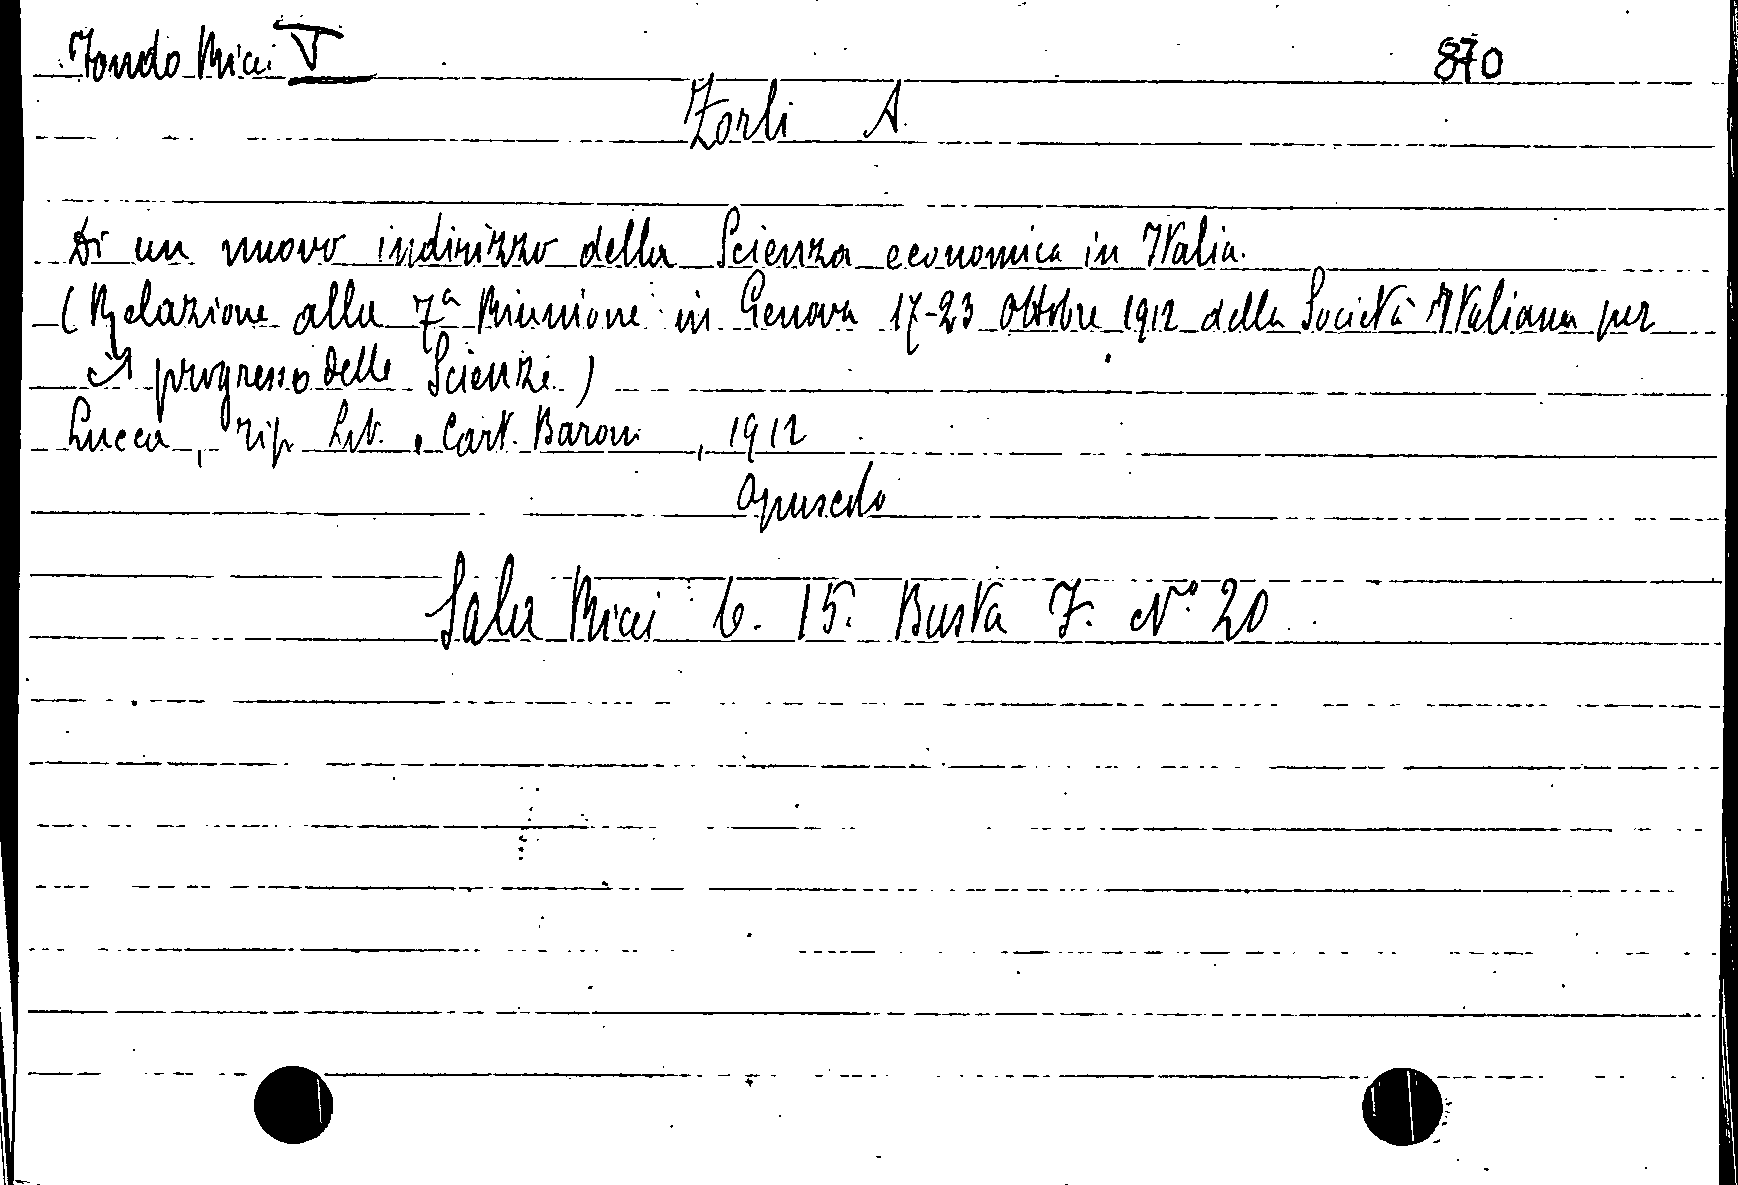 Fondo Ricci V
870
Zorli A.
Di un nuovo indirizzo della Scienza economica in Italia.
(Relazione alla 7ª Riunione in Genova 17-23 ottobre 1912 della Società Italiana per
il progresso delle Scienze)
Lucca, Tip. Lit. e Cart. Baroni, 1912
opuscolo
Sala Ricci 6. 15. Busta F. N° 20